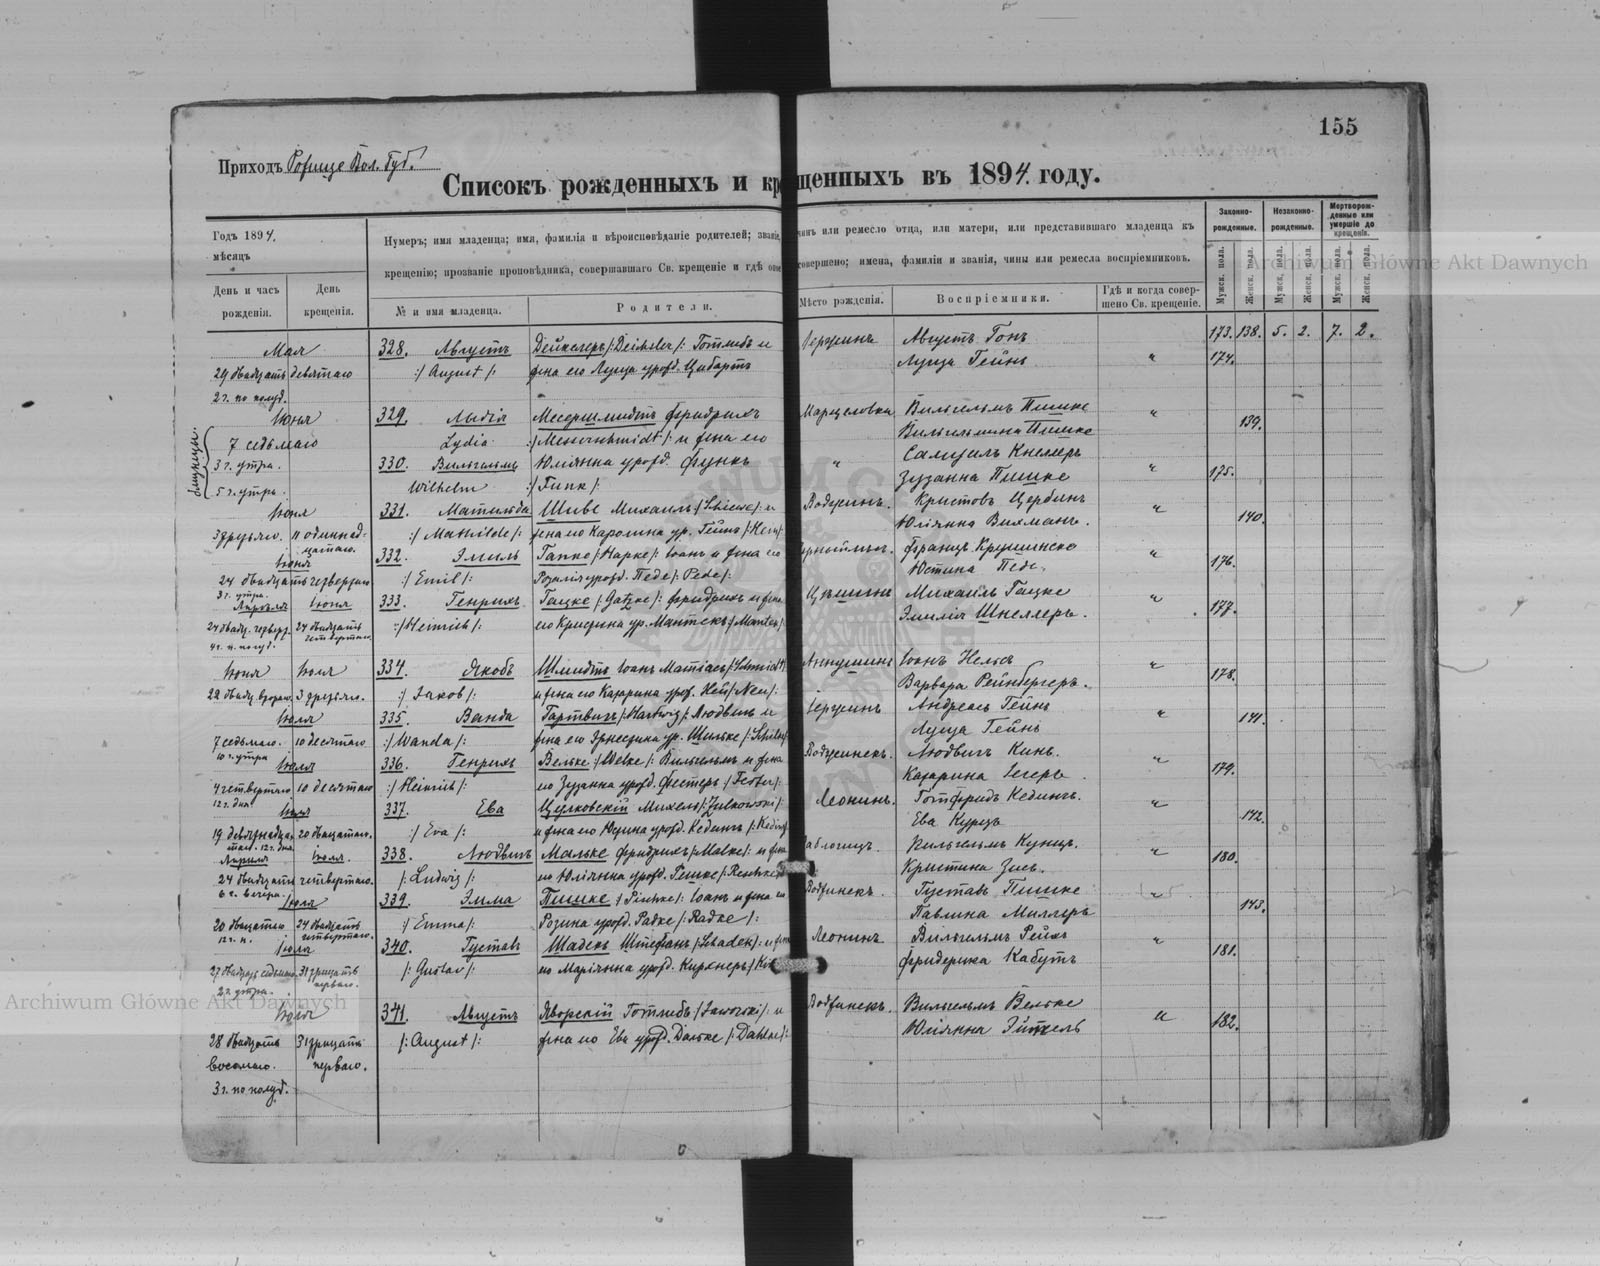 155
Приходъ Рожище Вол. Губ.
Списокъ рожденныхъ и крещенныхъ въ 1894 году.
Годъ 1894.
мѣсяцъ
День и часъ рожденія.
День крещенія.
Нумеръ; имя младенца; имя, фамилія и вѣроисповѣданіе родителей; званіе, чинъ или ремесло отца, или матери, или представившаго младенца къ
крещенію; прозваніе проповѣдника, совершавшаго Св. крещеніе и гдѣ оное совершено; имена, фамиліи и званія, чины или ремесла воспріемниковъ.
№ и имя младенца.
Родители.
Мѣсто рожденія.
Воспріемники.
Гдѣ и когда совершено Св. крещеніе.
Законнорожденные.
Незаконнорожденные.
Мертворожденные или умершіе до крещенія.
Мужск. пола.
Женск. пола.
Мужск. пола.
Женск. пола.
Мужск. пола.
Женск. пола.
173. 138. 5. 2. 7. 2.
Мая
29 двадцать девятаго
2 ч. по полуд.
328. Августъ
/: August /:
/: Deichsler /: Готлибъ и
жена его Луиза урожд. Цибартъ
Августъ Гонъ
Луиза Гейнъ
"
174.
Іюня
близнецы.
7 седьмаго
3 ч. утра.
329. Лидія
Lydia
Мессершмидтъ Фридрихъ
/: Messerschmidt /: и жена его
Марцеловка
Вильгельмъ Пишке
Вильгельмина Пишке
"
139.
5 ч. утра.
330. Вильгельмъ
Wilhelm
Юліянна урожд. Функъ
/: Funk /:
"
Самуилъ Кнеллеръ
Зузанна Пишке
"
175.
Іюня
3 третьяго. 11 одиннадцатаго.
331. Матильда
/: Mathilde /:
Шиве Михаилъ /: Schiewe /: и
жена его Каролина ур. Гейнъ /: Hein /:
Кристовъ Цербинъ
Юліянна Вихманъ.
"
140.
Іюня
24 двадцать четвертаго
3 ч. утра.
332. Эмиль
/: Emil /:
Гапке /: Hapke /: Іоанъ и жена его
Розалія урожд. Педе /: Pede /:
Францъ Крушинске
Юстина Педе.
"
176.
Апрѣля Іюня
24 двадц. четверт. 24 двадцать четвертаго.
4 ч. п. полуд.
333. Генрихъ
/: Heinrich /:
Гацке /: Gatzke /: Фридрихъ и жена
его Кристина ур. Мантей
Михаилъ Гацке
Эмилія Шнеллеръ.
"
177.
Іюня Іюля
22 двадц. втораго. 3 третьяго.
334. Якобъ
/: Jakob /:
Шмидтъ Іоанъ Матіасъ /: Schmidt
и жена его Катарина урож. Ней /: Neu /:
Іоанъ Нельсъ
Варвара Рейнбергеръ.
"
178.
Іюля
7 седьмаго. 10 десятаго
10 ч. утра
335. Ванда
/: Wanda /:
Гартвигъ /: Hartwig /: Людвигъ и
жена его Эрнестина ур. Шильке
Андреасъ Гейнъ
Луиза Гейнъ
"
141.
Іюля
4 четвертаго 10 десятаго
12 ч. дня
336. Генрихъ
/: Heinrich /:
Вельке /: Welke /: Вильгельмъ и жена
его Зузанна урожд. Фестеръ
Людвигъ Кинъ.
Катарина Гегеръ.
"
179.
Іюля
19 девятнадцатаго. 12 ч. дня. 20 двадцатаго.
337. Ева
/: Eva /:
Цулковскій Михель /: Zulkowski /:
и жена его Юстина урожд. Кедингъ /: Keding
Леонинъ.
Готфридъ Кедингъ.
Ева Курцъ
"
142.
Апрѣля Іюля.
24 двадцать четвертаго.
6 ч. вечера
338. Людвигъ
/: Ludwig /:
Мальке Фридрихъ /: Malke /: и жена
его Юліянна урожд. Решке /: Reschke
Вильгельмъ Кунцъ.
Кристина Зисъ.
"
180.
Іюля
20 двадцатаго 24 двадцать четвертаго.
12 ч. н.
339. Эмма
/: Emma /:
Пишке /: Pischke /: Іоанъ и жена его
Розина урожд. Радке /: Radke /:
Густавъ Пишке
Павлина Миллеръ
"
143.
Іюля
27 двадцать седьмаго 31 тридцать перваго.
2 ч. утра.
340. Густавъ
/: Gustav /:
Шадекъ Штефанъ /: Schadek /: и жена
его Маріянна урожд. Кирхнеръ
Леонинъ
Вильгельмъ Рейхъ
Фридерика Кабутъ
"
181.
Іюля
28 двадцать восьмаго. 31 тридцать перваго.
3 ч. по полуд.
341. Августъ
/: August /:
Яворскій Готлибъ /: Jaworski /: и
жена его Ева урожд. Дальке /: Dahlke /:
Вильгельмъ Вельке
Юліянна Зиткель
"
182.
Archiwum Główne Akt Dawnych
Archiwum Główne Akt Dawnych